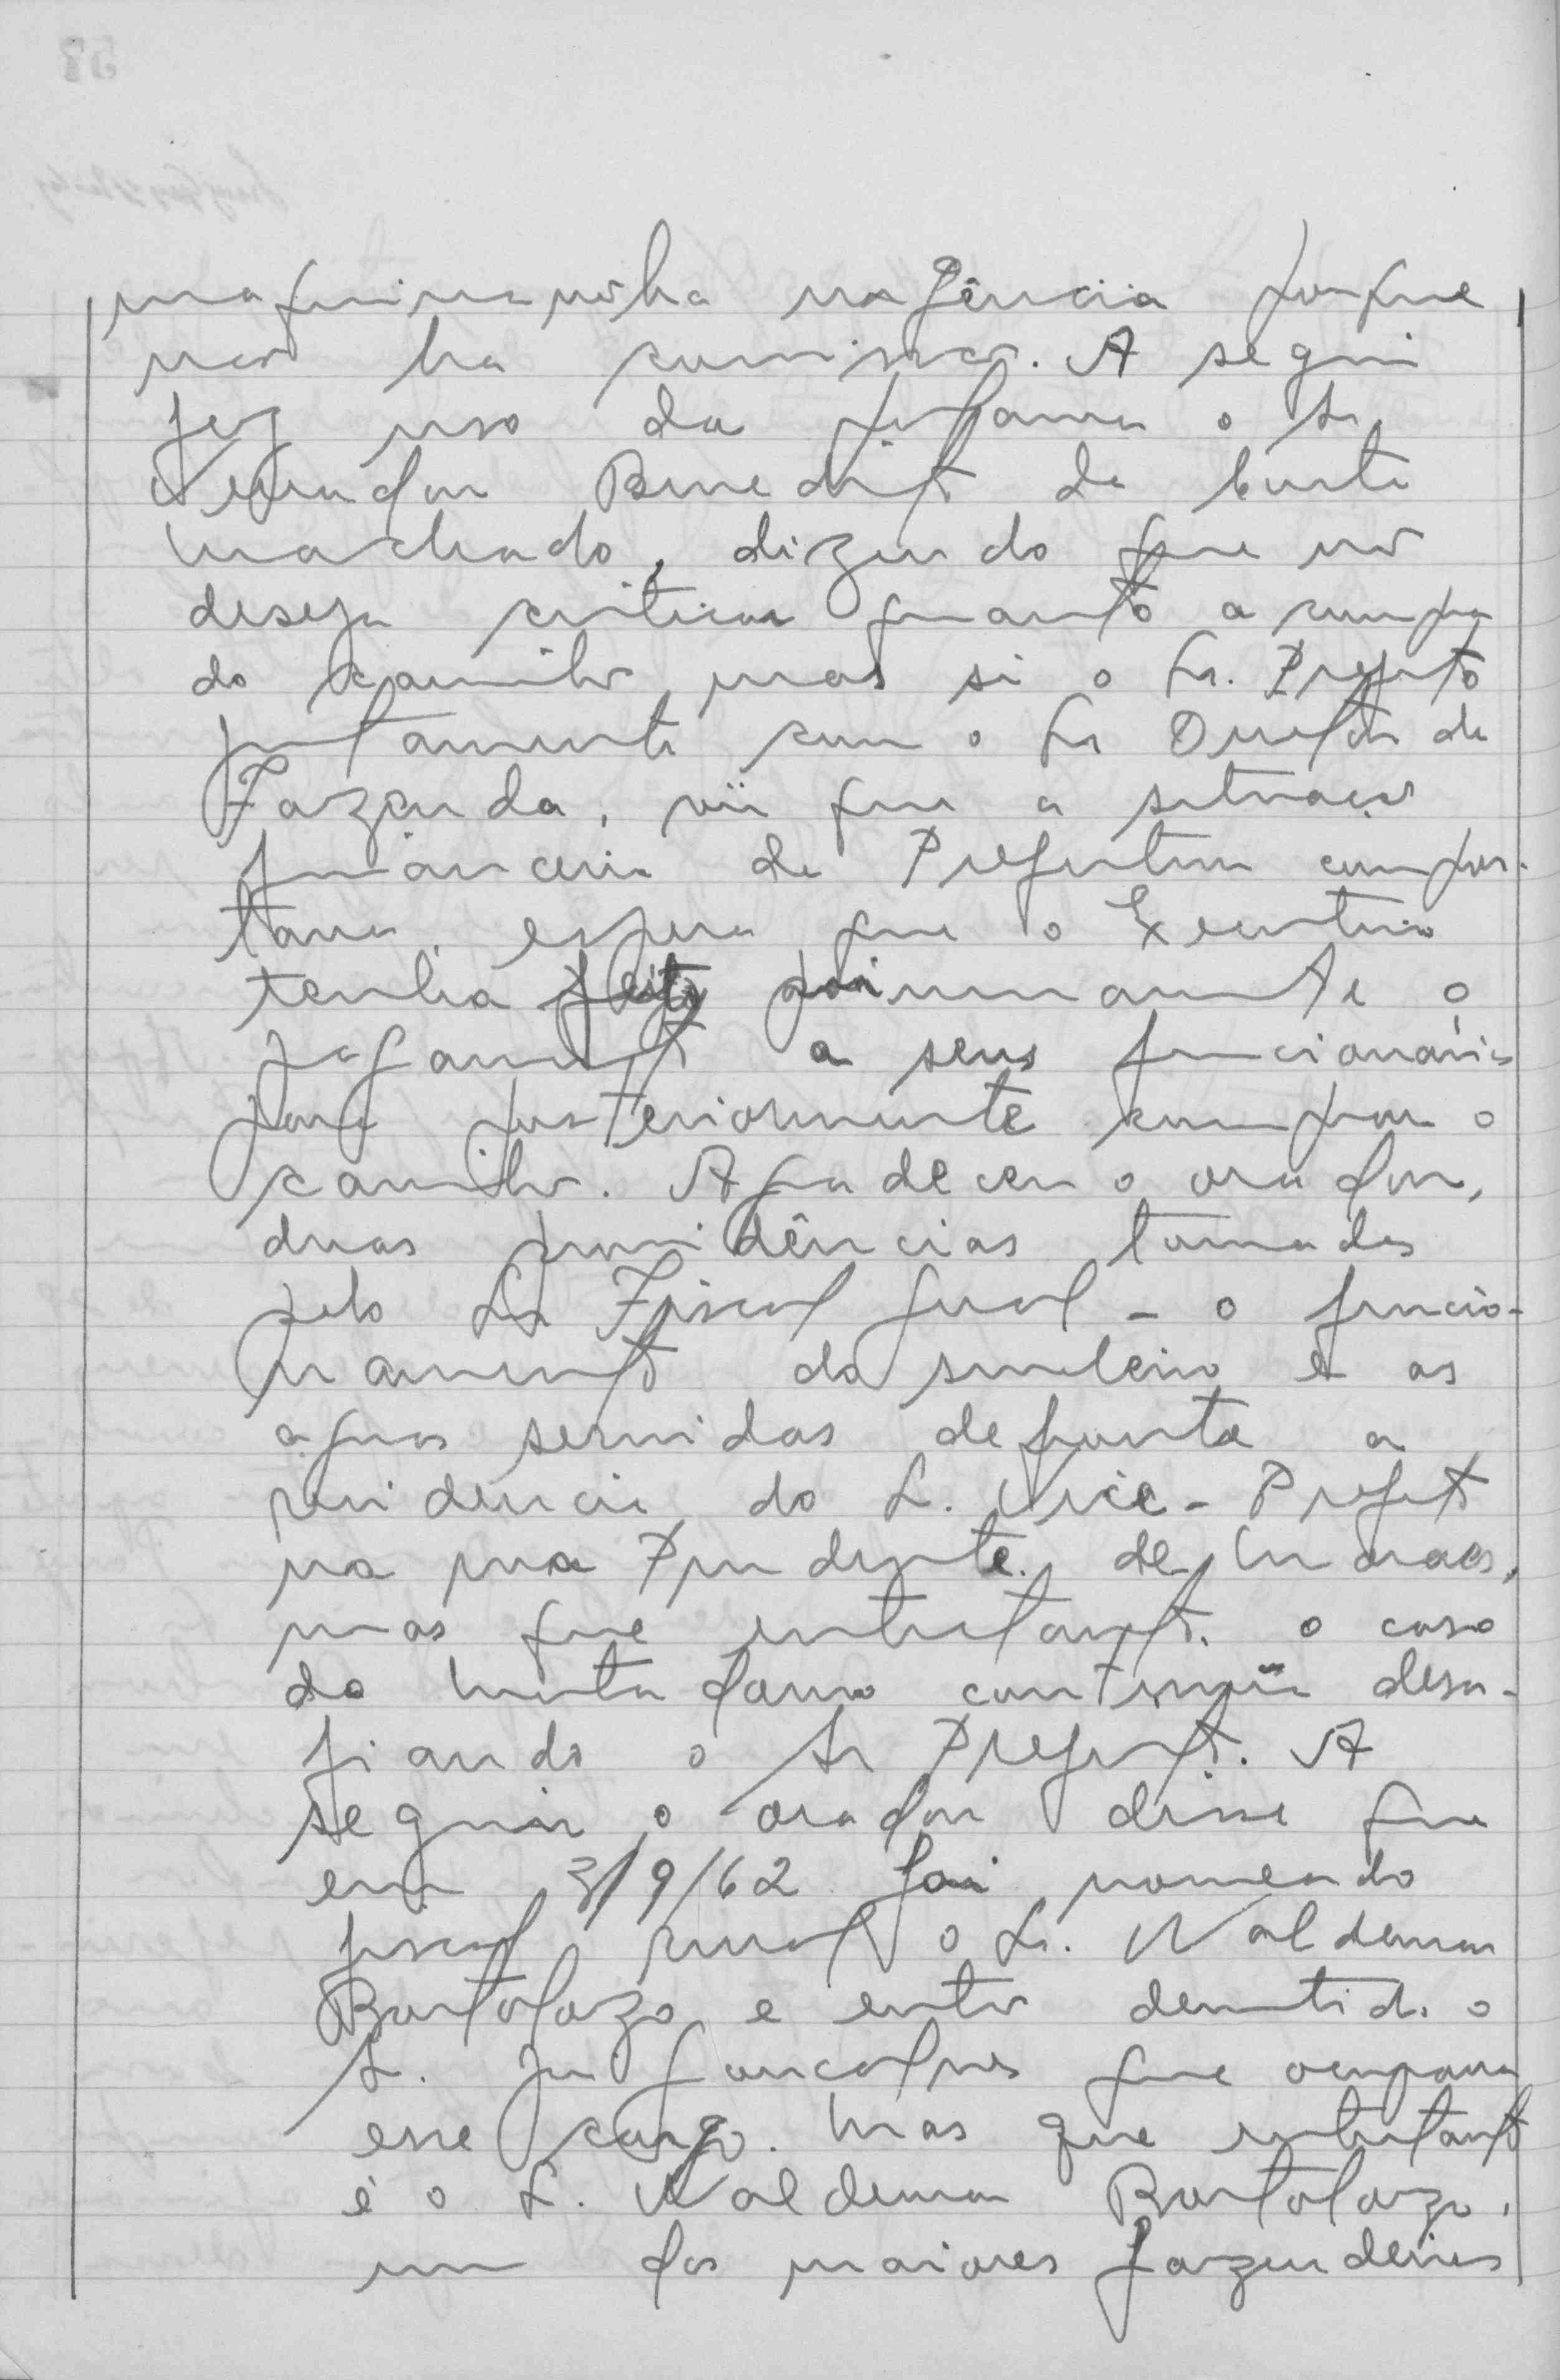 não há urgência porque
não ha comissão. A seguir
fez uso da palavra o Sr
Vereador Benedito da Costa
Machado, dizendo que não
deseja criticar quanto a compra
do caminhão mas si o Sr. Prefeito
juntamente com o Sr Diretor da
Fazenda, viu que a situação
financeira da Prefeitura compor-
tava, espera que o Executivo
tenha feito primeiramente o
pagamento a seus funcionários
para posteriormente comprar o
caminhão. Agradeceu o orador,
duas providências tomadas
pelo Sr Fiscal Geral - o funcio-
namento do e as
aguas servidas defronte a
residencia do Sr. Vice-Prefeito
na rua Prudente de Moraes,
mas que entretanto o caso
do Matadouro continúa desa-
fiando o Sr Prefeito. A
seguir o orador disse que
em 3/9/62 foi nomeado
fiscal rural o Sr. Waldemar
Bortolazo e então demitido o
Sr. Gonçalves que ocupava
esse cargo. Mas que entretanto
é o Sr. Waldemar Bortolazo,
um dos maiores fazendeiros